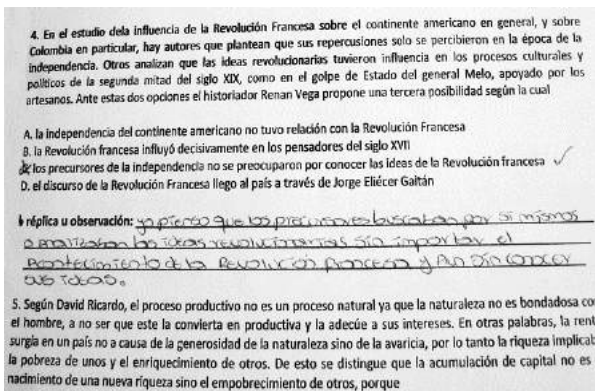 4. En el estudio dela influencia de la Revolución Francesa sobre el continente americano en general, y sobre
Colombia en particular, hay autores que plantean que sus repercusiones solo se percibieron en la época de la
independencia. Otros analizan que las ideas revolucionarias tuvieron influencia en los procesos culturales y
políticos de la segunda mitad del siglo XIX, como en el golpe de Estado del general Melo, apoyado por los
artesanos. Ante estas dos opciones el historiador Renan Vega propone una tercera posibilidad según la cual
A. la independencia del continente americano no tuvo relación con la Revolución Francesa
B. la Revolución francesa influyó decisivamente en los pensadores del siglo XVII
los precursores de la independencia no se preocuparon por conocer las ideas de la Revolución francesa
D. el discurso de la Revolución Francesa llego al país a través de Jorge Eliécer Gaitán
réplica u observación: yo pienso que los precursores buscaban por si mismos
o analizaban las ideas revolucionarias sin importar el
Acontecimiento de la Revolución francesa y Aun sin conocer
sus ideas.
5. Según David Ricardo, el proceso productivo no es un proceso natural ya que la naturaleza no es bondadosa co
el hombre, a no ser que este la convierta en productiva y la adecúe a sus intereses. En otras palabras, la rent
surgía en un país no a causa de la generosidad de la naturaleza sino de la avaricia, por lo tanto la riqueza implicab
la pobreza de unos y el enriquecimiento de otros. De esto se distingue que la acumulación de capital no es
nacimiento de una nueva riqueza sino el empobrecimiento de otros, porque